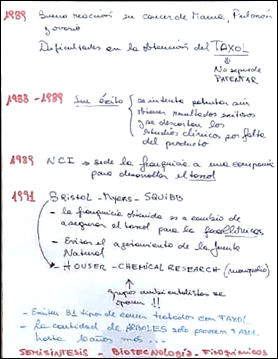 1989 Buena reacción en cancer de Mama, Pulmón
y ovario
Dificultades en la obtención del TAXOL
No se puede
PATENTAR
1988 - 1989 Sin éxito se intenta patentar sin
obtener resultados exitosos
y se descartan los
estudios clínicos por falta
del producto
1989 NCI cede la franquicia a una compañia
para desarrollar el taxol
1991 BRISTOL - Myers - SQUIBB
- la franquicia obtenida es a cambio de
asegurar el taxol para la
- Evitar el agotamiento de la fuente
Natural
- HAUSER - CHEMICAL RESEARCH
grupo ambientalistas se
oponen !!
- Existen 31 tipos de cancer tratados con TAXOL
- La cantidad de ARBOLES solo proveen TAXOL
hasta 6 años más...
SEMISINTESIS - BIOTECNOLOGÍA - FISOQUIMICOS